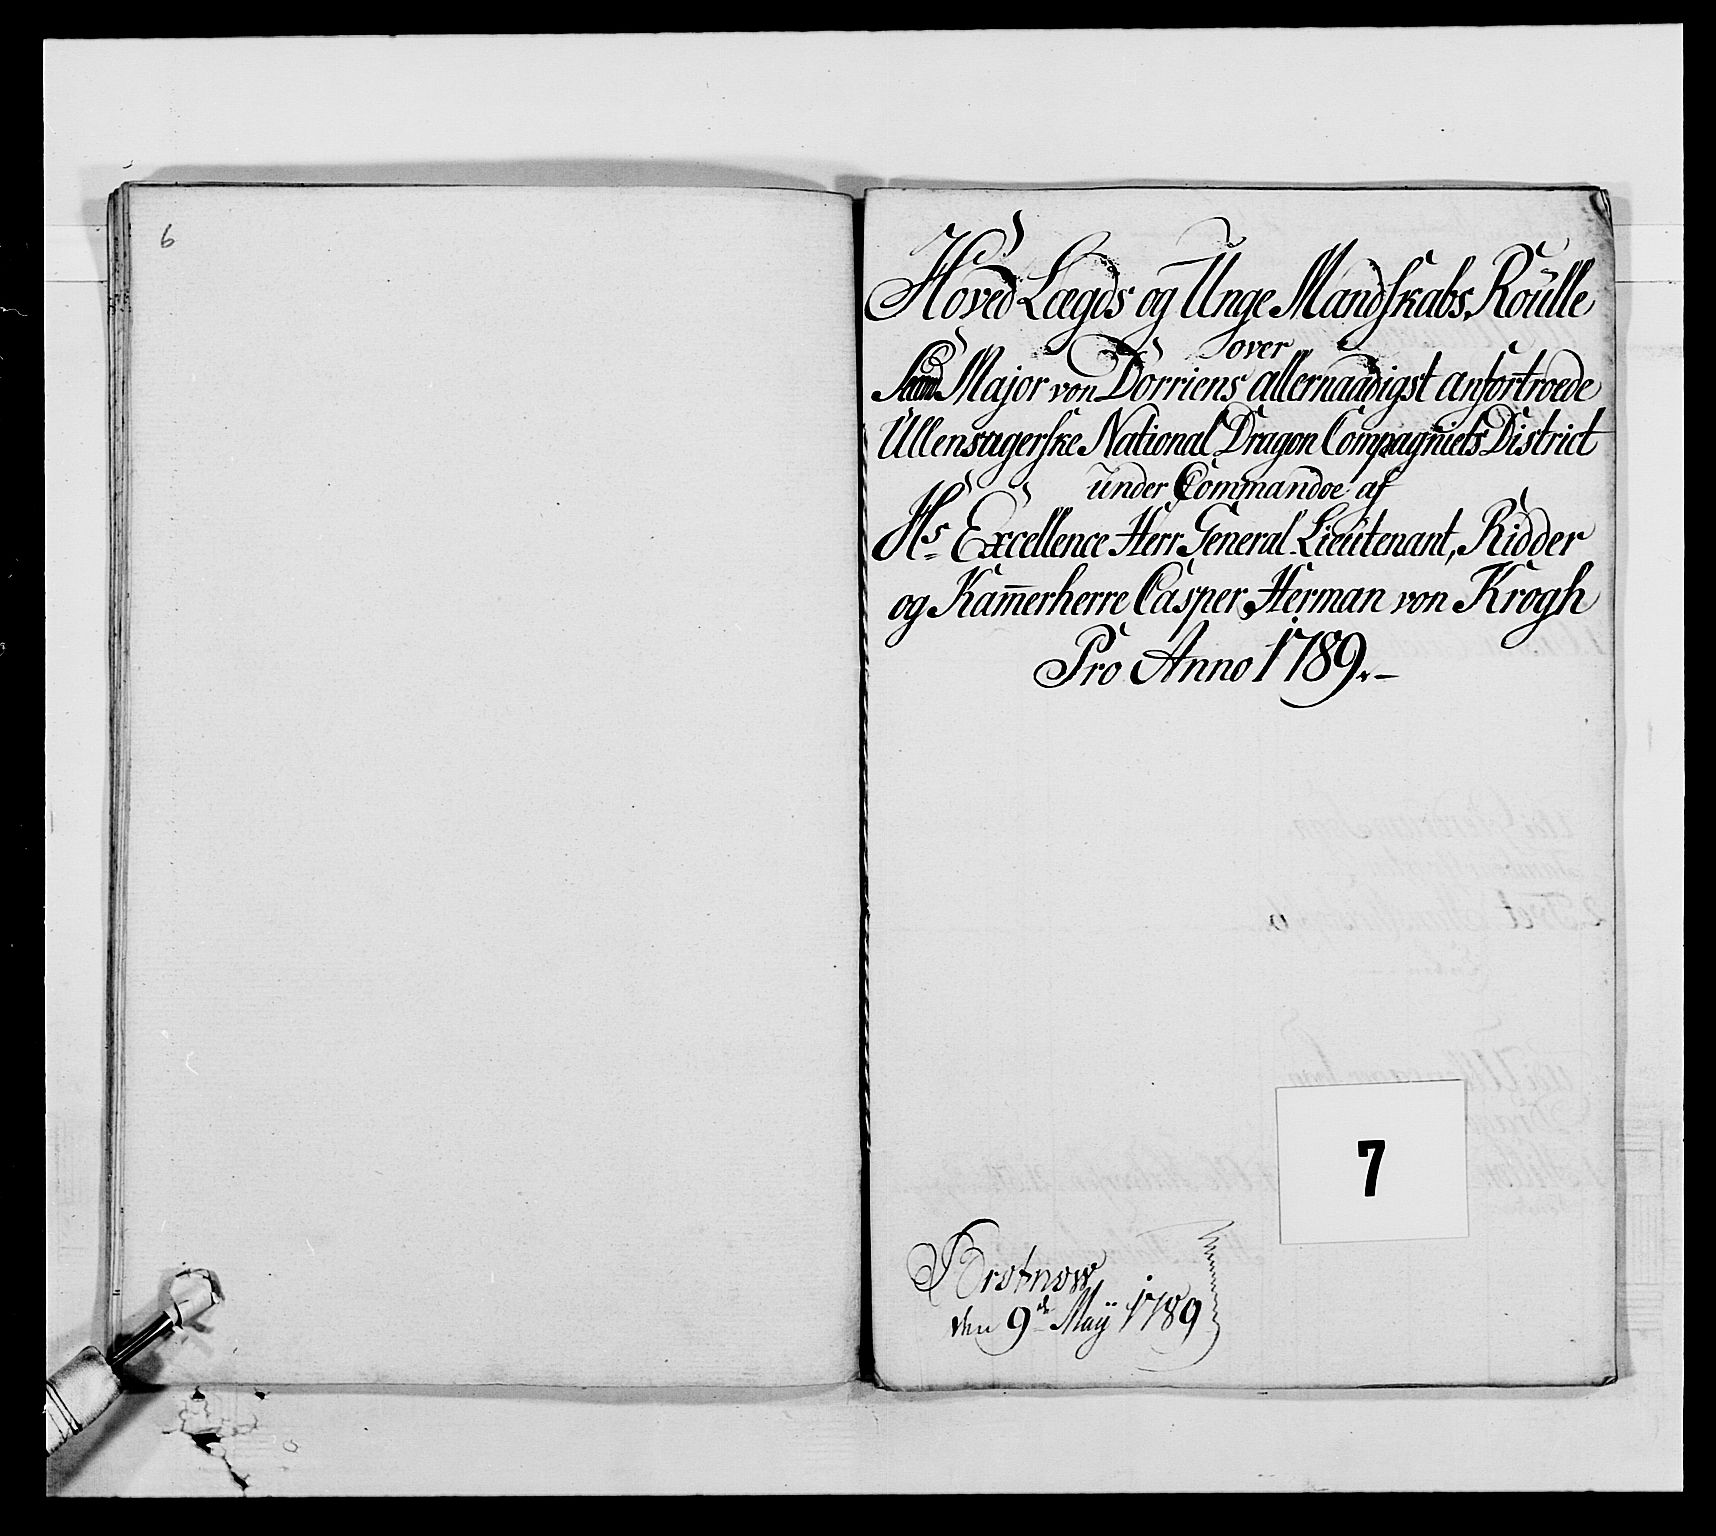 6
Hoved Lægds og Unge Mandskabs Roulle
over
Major von Dorriens allernaadigst anfortroede
Ullensagerske National Dragon Compagniets District
under Commandoe af
Hs Excellence Herr General Lieutenant, Ridder
og Kam̅erherre Casper Herman von Krogh
Pro Anno 1789.-
7
Brotnow
den 9de Maÿ 1789